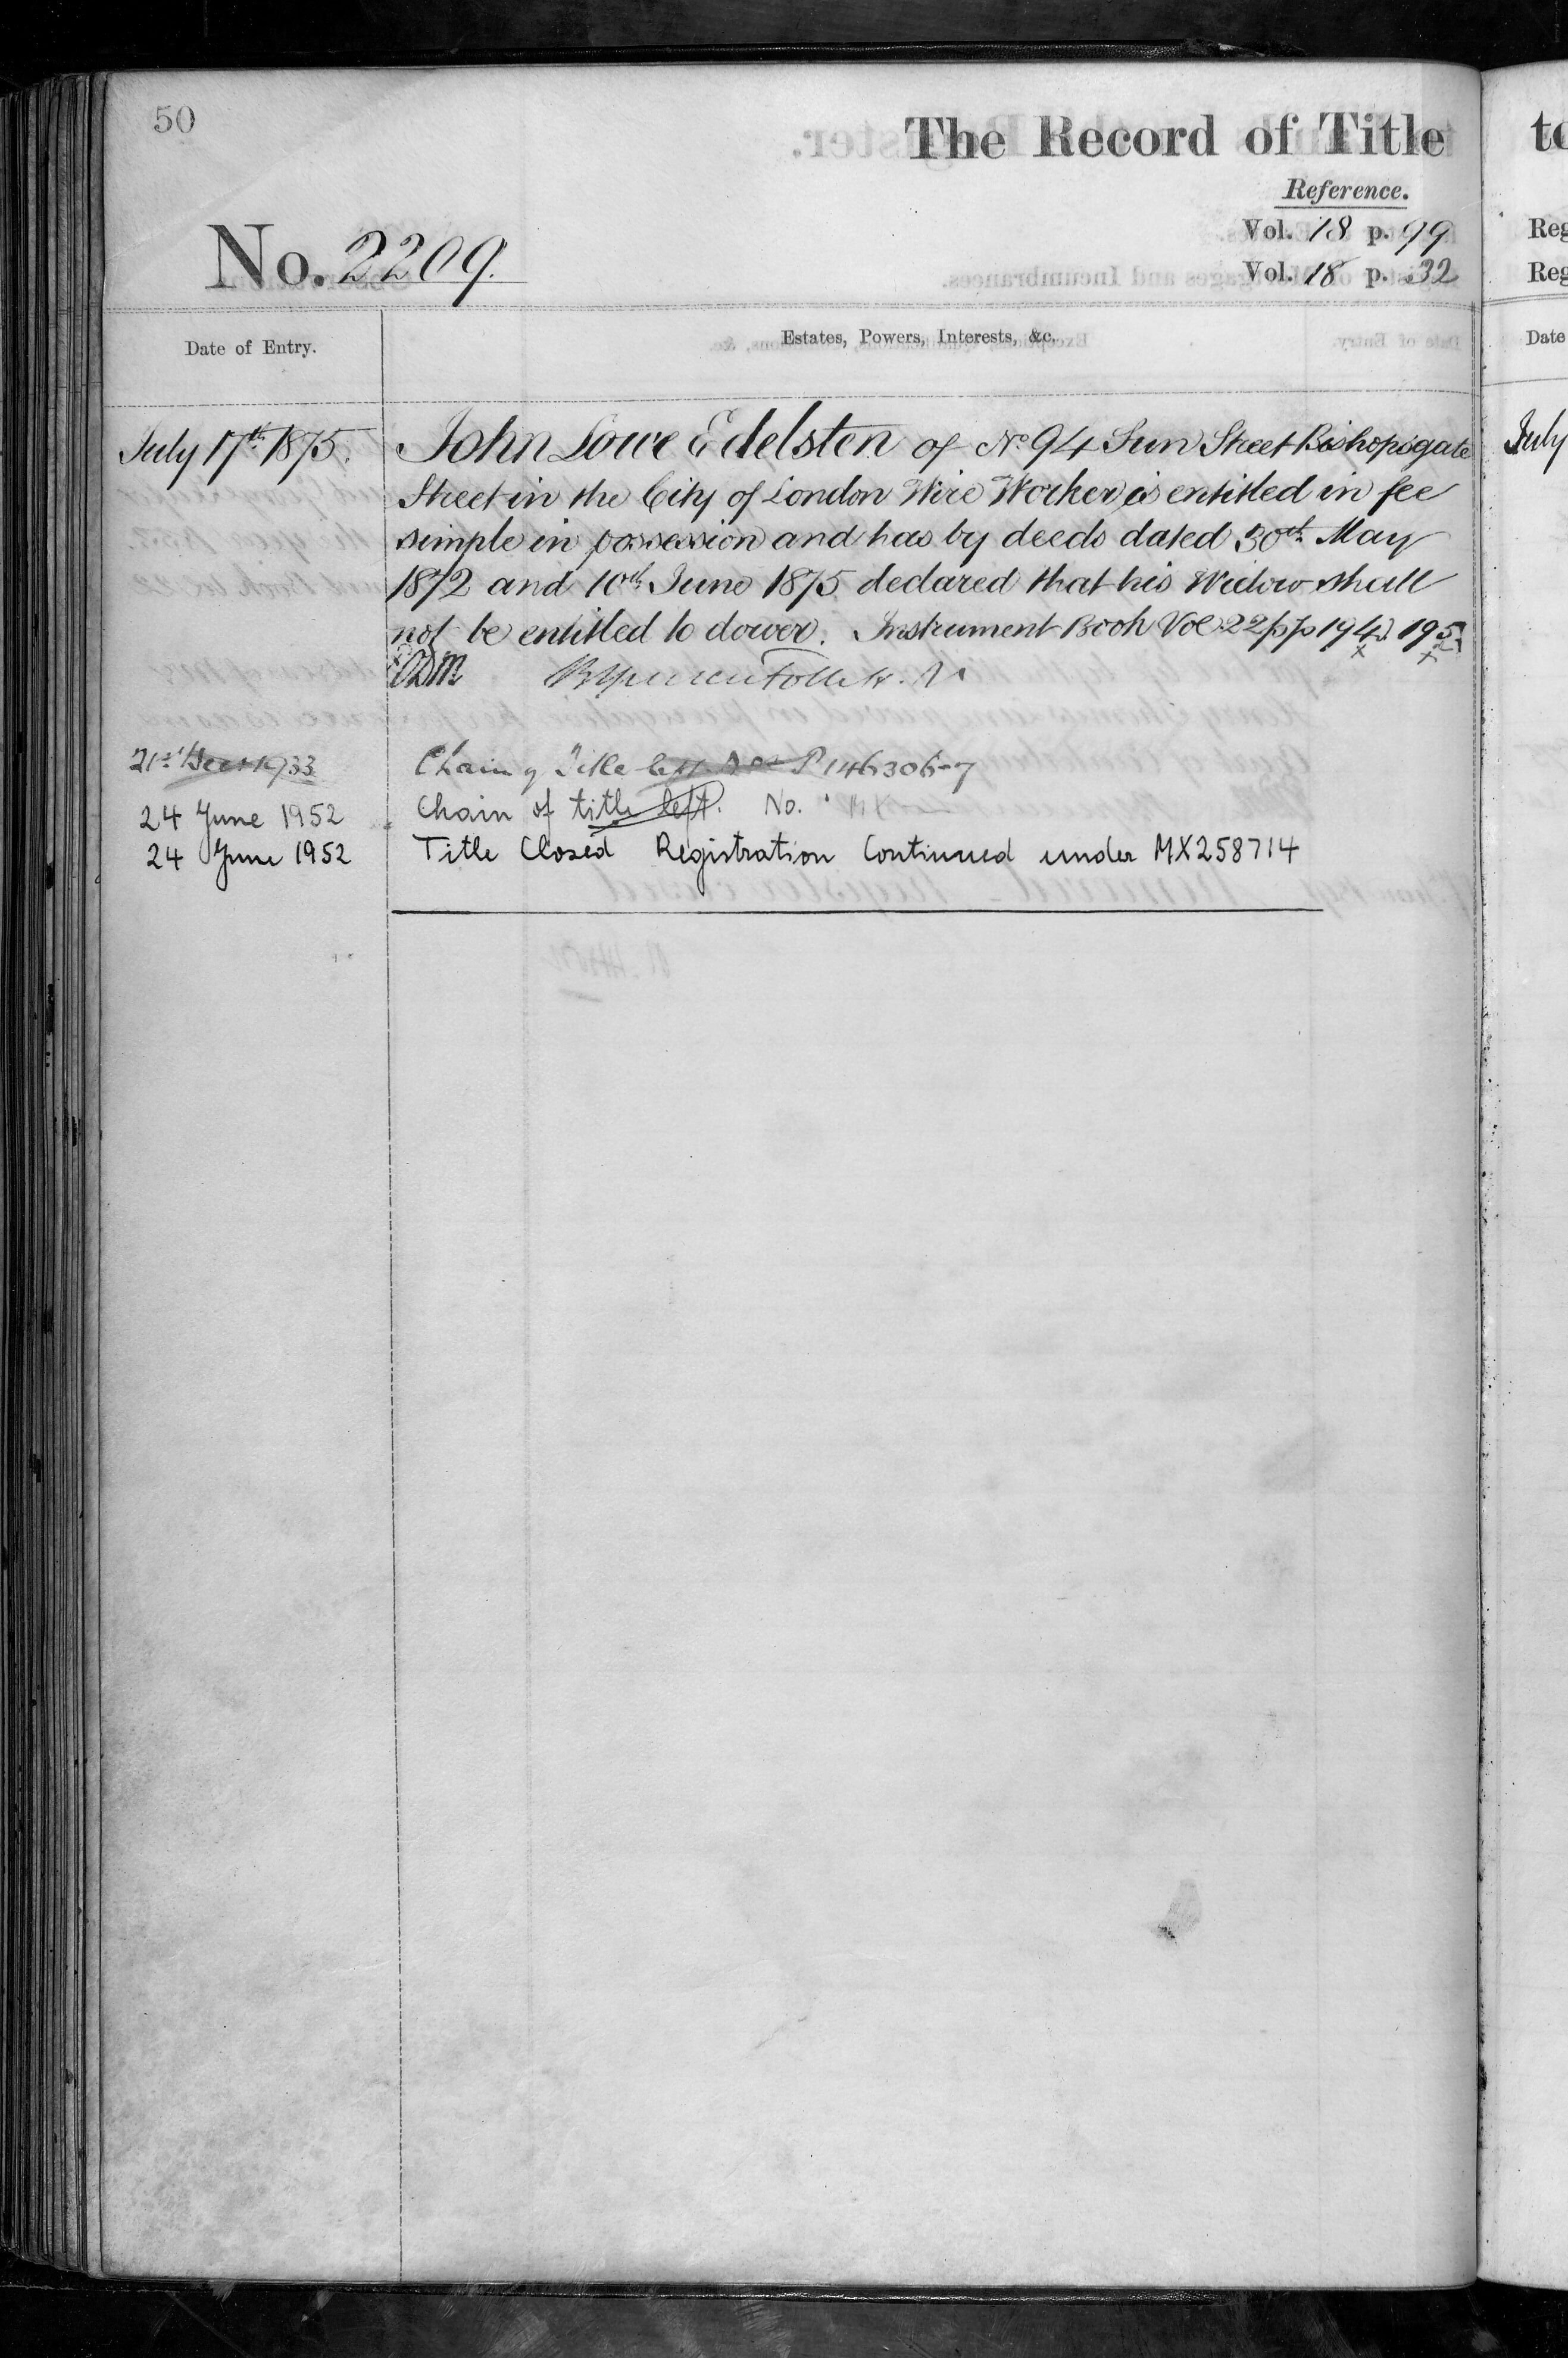 50
The Record of Title
Reference.
Vol. 18 p. 99
Vol. 18 p. 32
No. 2209.
Date of Entry.
Estates, Powers, Interests, &c.
July 17th 1875.
John Lowe Edelsten of No 94 Sun Street Bishopsgate
Street in the City of London Wire Worker is entitled in fee
simple in possession and has by deeds dated 30th May
1872 and 10th June 1875 declared that his Widow shall
not be entitled to dower. Instrument Book Vol 22 pp 194 & 195
Follett
21st Dec 1933 Chain of Title left P146306-7
24 June 1952 Chain of title left. No.
24 June 1952 Title Closed Registration Continued under MX258714
to
Reg
Reg
Date
July